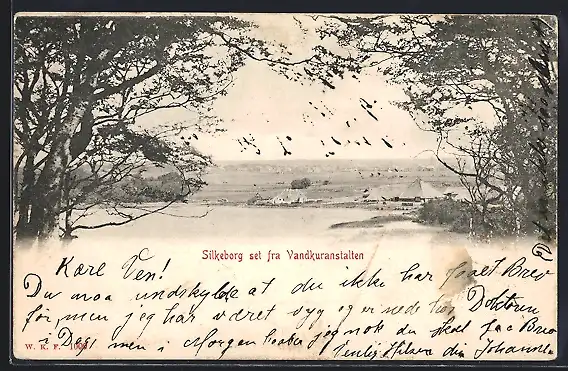 Silkeborg set fra Vandkuranstalten
Kære Ven!
Du maa undskylde at du ikke har faaet Brev
før, men jeg har været syg og er nede hos Doktoren
i Dag men i Morgen haaber jeg nok du skal faa Brev
Venlig Hilsen din Johanne
W. K. F.